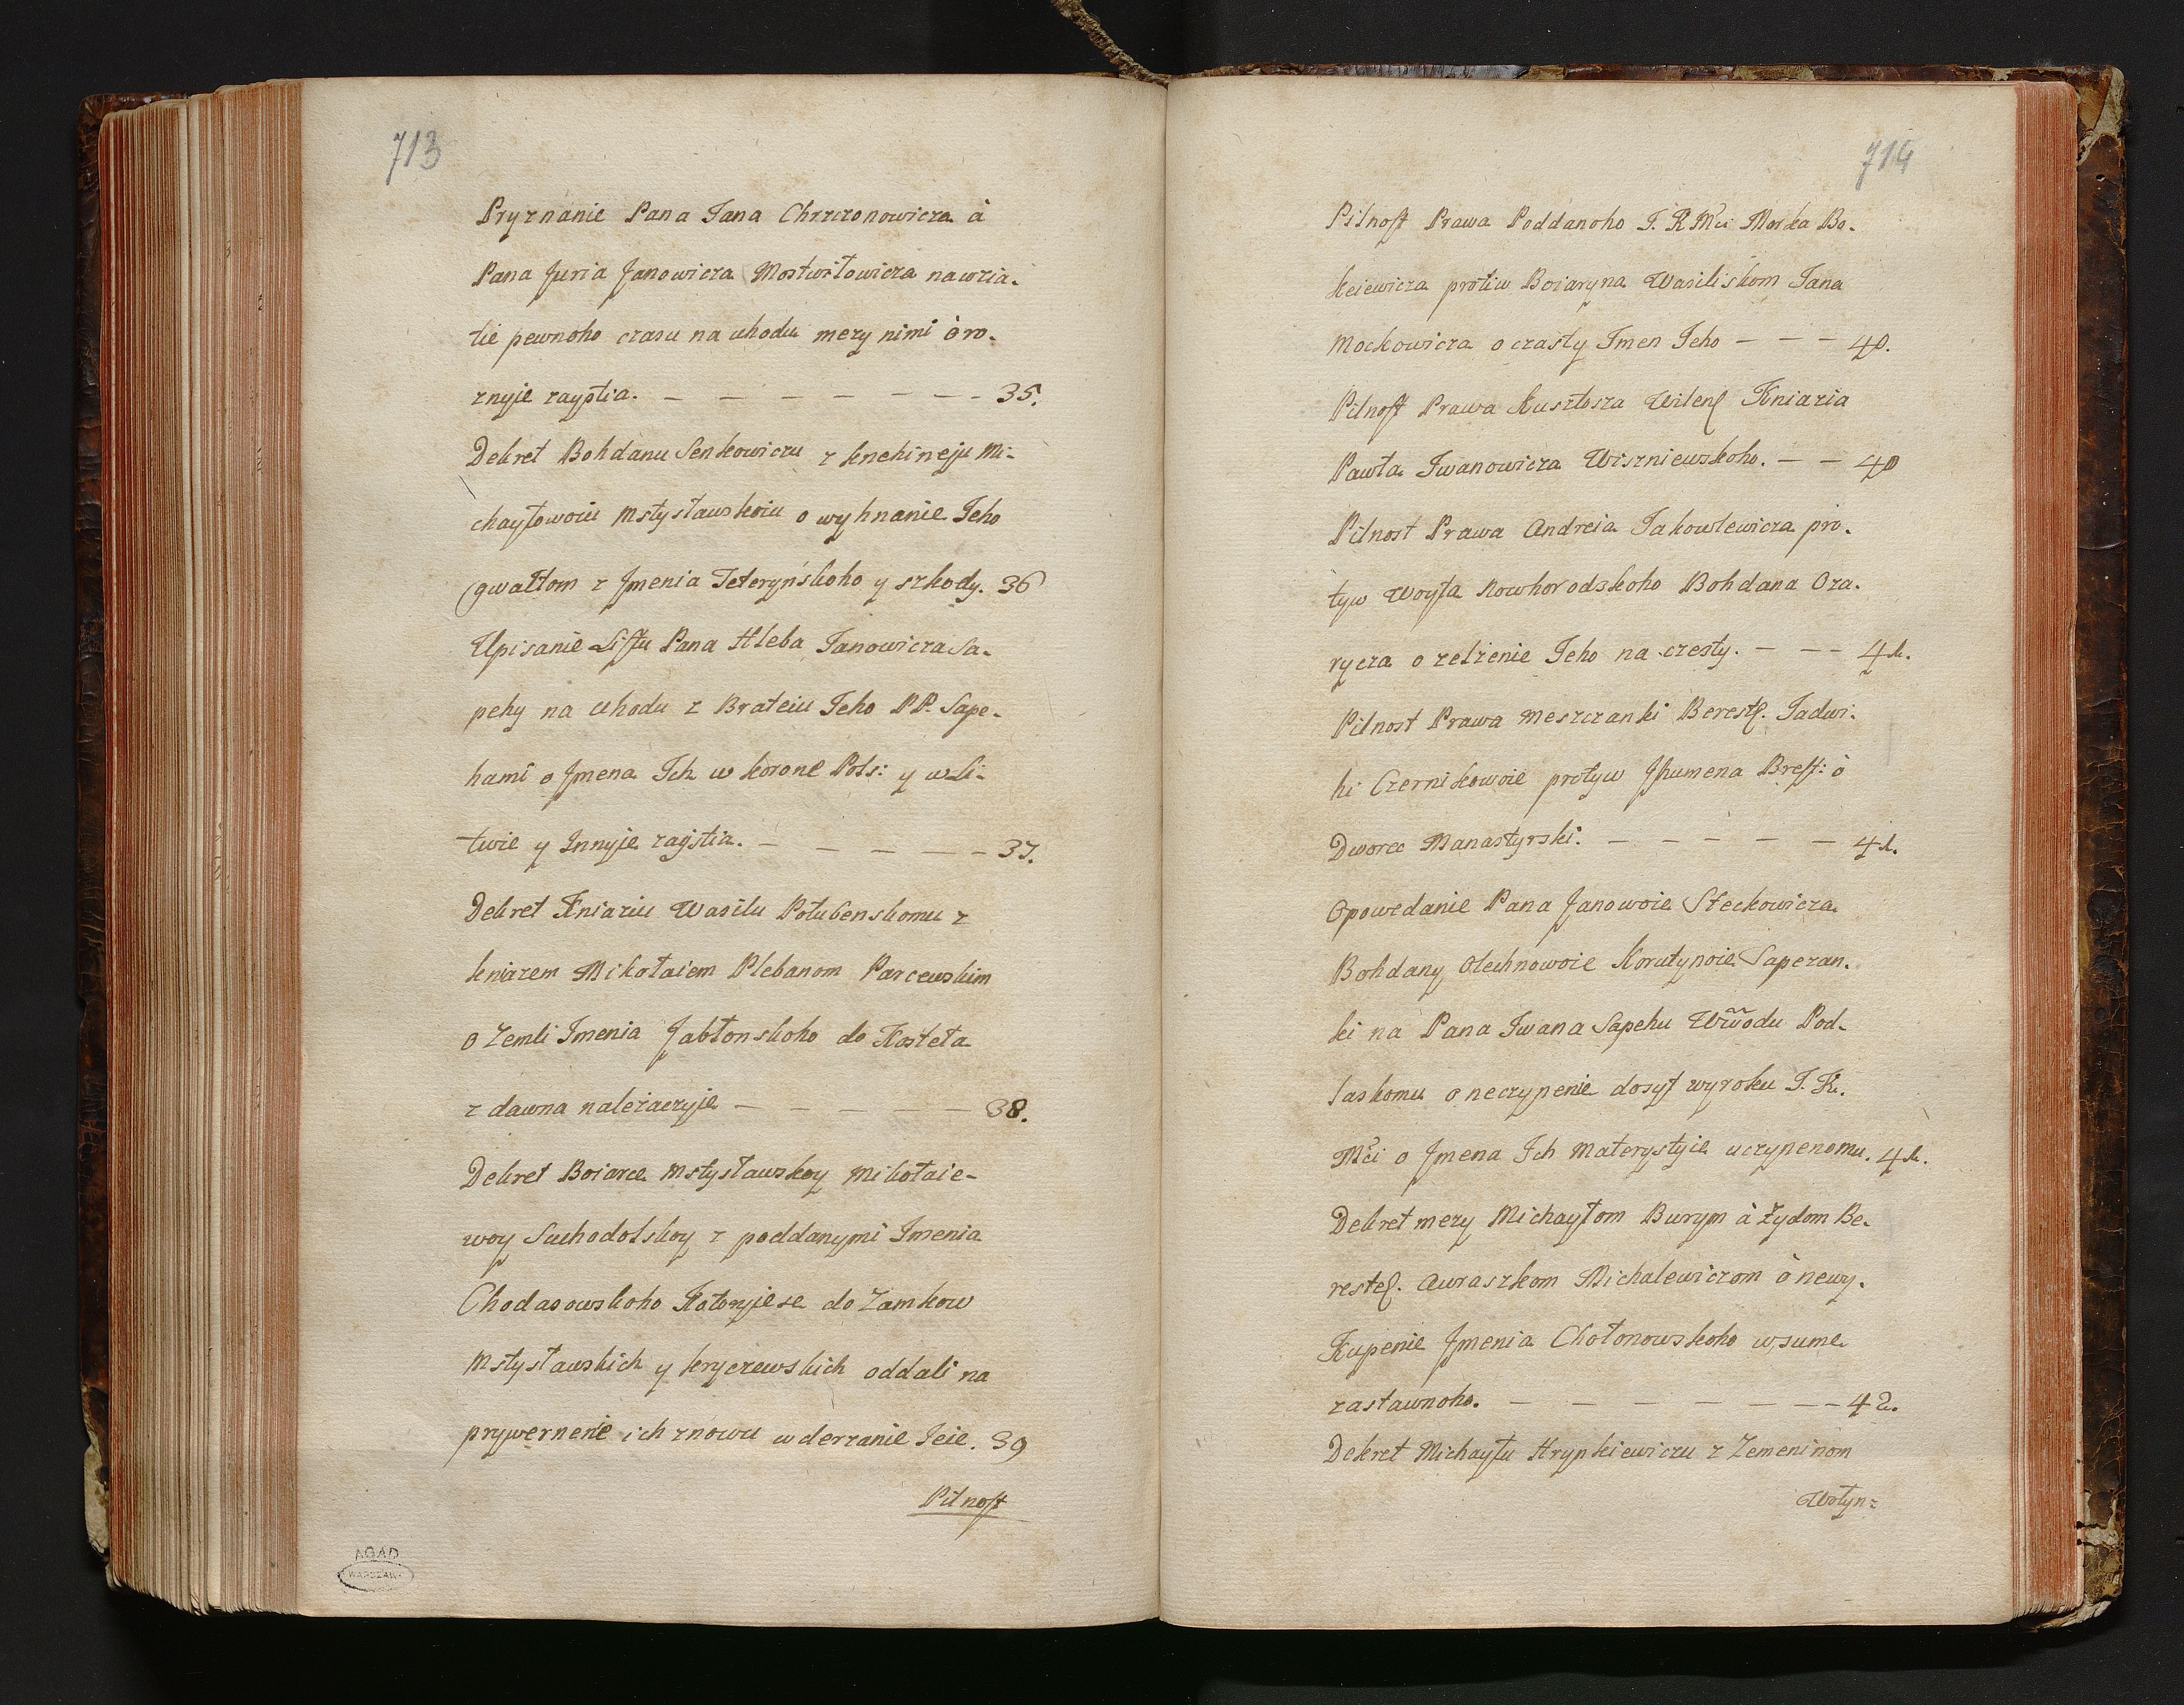 713
Pryznanie Pana Jana Chrzczonowicza à
Pana Juria Janowicza Montwiłowicza nawzia-
tie pewnoho czasu na uhodu mezy nimi ò ro-
znyje zaystia. — — — — — — — 35.
Dekret Bohdanu Senkowiczu z knehineju Mi-
chayłowoiu Mstysławskoiu o wyhnanie Jeho
gwałtom z Jmenia Teteryńskoho y szkody. 36
Upisanie Listu Pana Hleba Janowicza Sa-
pehy na uhodu z Brateiu Jeho PP. Sape-
hami o Jmena Jch w korone Pols: y w Li-
twie y Innyje zaystia. — — — — — 37.
Dekret Kniaziu Wasilu Połubenskomu z
kniazem Mikołaiem Plebanom Parcewskim
o Zemli Imenia Jabłonskoho do Kosteła
z dawna należaczyje — — — — — 38.
Dekret Boiarce Mstysławskoy Mikołaie-
woy Suchodolskoy z poddanymi Imenia
Chodasowskoho Kotoryje se do Zamkow
Mstysławskich y kryczewskich oddali na
prywernenie ich znowu w derzanie Jeie. 39
Pilnost
AGAD
WARSZAWA
714
Pilnost Prawa Poddanoho J. K Mci Morka Bo-
keiewicza protiw Boiaryna Wasiliskom Jana
Mockowicza o czasty Imen Jeho — — — 40.
Pilnost Prawa Kusztosza Wilens Kniazia
Pawła Iwanowicza Wiszniewskoho. — — 40
Pilnost Prawa Andreia Jakowlewicza pro-
tyw Woyta Nowhorodskoho Bohdana Oza-
rycza o zelzenie Jeho na czesty. — — — 41.
Pilnost Prawa meszczanki Berests. Jadwi-
hi Czernikowoie protyw Jhumena Brest: ò
Dworec Manastyrski. — — — — — 41.
Opowedanie Pana Janowoie Steckowicza
Bohdany Olechnowoie Korutynoie Sapezan-
ki na Pana Iwana Sapehu Wwodu Pod-
laskomu o neczynenie dosyt wyroku J. K.
Mci o Jmena Ich Materystyie uczynenomu. 41.
Dekret mezy Michayłom Burym à Żydom Be-
rests. Awraszkom Michalewiczom ò newy-
Kupenie Jmenia Chołonowskoho w sume
zastawnoho. — — — — — — — 42.
Dekret Michayłu Hrynkiewiczu z Zemeninom
Wołyn-